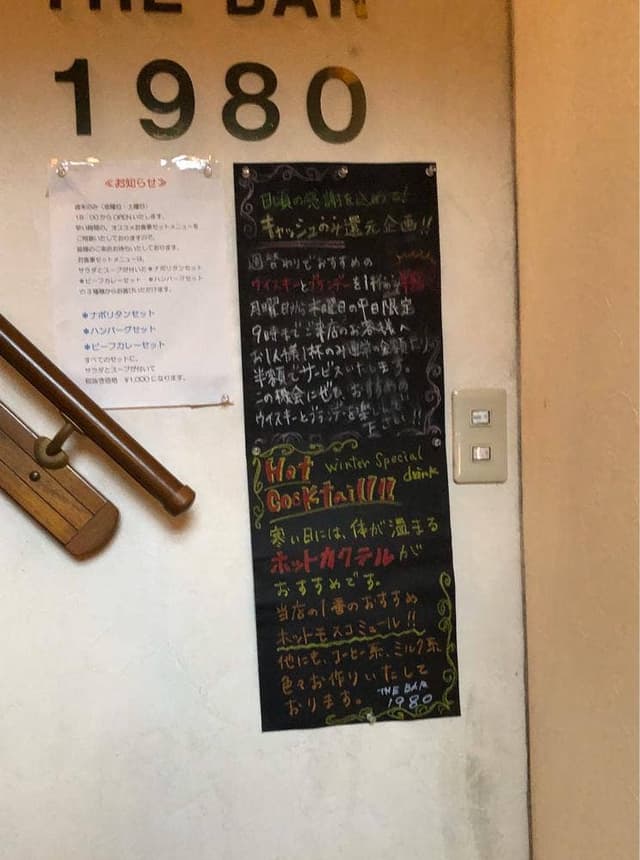 THE BAR
1980
≪お知らせ≫
週末のみ（金曜日・土曜日）
18：00からOPENいたします。
早い時間の、オススメお食事セットメニューを
ご用意いたしておりますので、
皆様のご来店お待ちいたしております。
お食事セットメニューは、
サラダとスープが付いた＊ナポリタンセット
＊ビーフカレーセット ＊ハンバーグセット
の3種類からお選びいただけます。
＊ナポリタンセット
＊ハンバーグセット
＊ビーフカレーセット
すべてのセットに、
サラダとスープが付いて
税抜き価格 ¥1,000になります。
日頃の感謝を込めて!
キャッシュのみ還元企画!!
週替わりでおすすめの
ウイスキーとブランデーを1杯のみ半額
月曜日から木曜日の平日限定
9時までご来店のお客様へ
お1人様1杯のみ通常の金額より
半額でサービスいたします。
この機会にぜひ
ウイスキーとブランデーを
下さい!!
Hot Winter Special
Cocktail!!! drink
寒い日には、体が温まる
ホットカクテルが
おすすめです。
当店の1番のおすすめ
ホットモスコミュール!!
他にも、コーヒー系、ミルク系
色々お作りいたして
おります。 THE BAR
1980